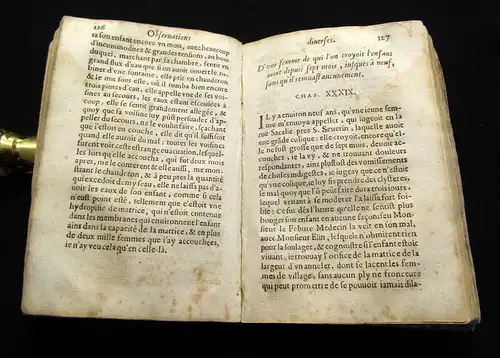 126 Obseruations
ta son enfant encore vn mois, auec beaucoup
d'incommoditez & grandes enfleures, au bout
duquel, marchant par sa chambre, sentit vn
grand flux d'eau qui
d'vne fontaine, elle prit vn chandron
& le mit sous elle, où il tomba bien encore
trois pintes d'eau, elle appella vne de ses voisines
au secours, les eaux estans escoulées à
force, elle se sentit grandement allegée, &
quoy que sa voisine luy pust persuader d'appeller
du secours, ne le voulut faire, sçachant
que le temps d'accoucher de son enfant
n'estoit encore venu, elle dit qu'il suffisoit
quand elle auroit du mal: toutes les voisines
furent voir cette estrange euacuation, lesquelles
lors qu'elle accoucha, qui fut deux mois
apres, me le conterent, & elle aussi, me monstrant
le chandron, & à peu pres la quantité
qui excedoit de my seau, elle ne laissa pas d'auoir
les eaux de son enfant, comme si cela
n'eust point esté, tellement que c'estoit vne
hydropisie de matrice, qui n'estoit contenuë
dans les membranes qui enuironnent l'enfant
ains dans la capacité de la matrice, & en plus
de deux mille femmes que i'ay accouchées,
ie n'ay veu cela qu'en celle-là.
diuerses. 127
D'vne femme de qui l'on croyoit l'enfant
mort depuis sept mois, iusques à neuf,
sans qu'il remuast aucunement.
CHAP. XXXIX.
IL y a enuiron neuf ans, qu'vne ieune femme
m'enuoya appeller, qui logeoit en la
ruë Sacalie pres S. Seuerin, laquelle auoit
vne grãde colique: elle croyoit, encore qu'elle
ne fust grosse que de sept mois, deuoir accoucher,
ie la vy, & n'y trouuant douleurs
répondantes, ains plustost des vomissements
de choses indigestes, ie iugeay que ce n'estoit
qu'vne colique, ie luy fis prendre des clysteres,
le mal quoy que l'õ peust faite dura trois iours,
lequel venant à se moderer la laissa fort foible:
& croyoit dés l'heure qu'elle ne sentoit plus
bouger son enfant en aucune façon, feu Monsieur
le Febure Medecin la veit en son mal,
auec Monsieur Elin, lesquels n'obmirent rien
pour la soulager, & cognoistre si l'enfant estoit
viuant, ie trouuay l'orifice de la matrice de la
largeur d'vn annelet, dont se lacent les femmes
de village, sans aucun ply ne fronceure
qui peust permettre de se pouuoir iamais dila-